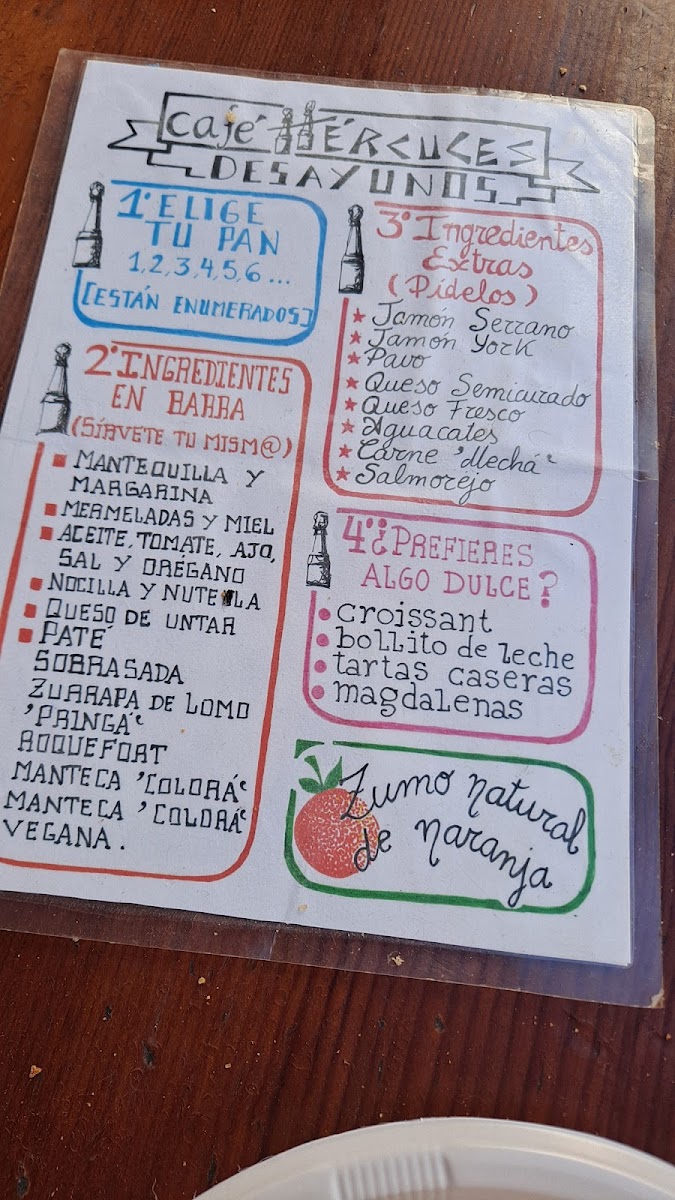 Café HÉRCULES
DESAYUNOS
1º ELIGE
TU PAN
1,2,3,4,5,6...
[ESTÁN ENUMERADOS]
2º INGREDIENTES
EN BARRA
(SÍRVETE TU MISM@)
MANTEQUILLA Y
MARGARINA
MERMELADAS Y MIEL
ACEITE, TOMATE, AJO,
SAL Y ORÉGANO
NOCILLA Y NUTELLA
QUESO DE UNTAR
PATÉ
SOBRASADA
ZURRAPA DE LOMO
'PRINGÁ'
ROQUEFORT
MANTECA 'COLORÁ'
MANTECA 'COLORÁ'
VEGANA.
3º Ingredientes
Extras
(Pídelos)
★ Jamón Serrano
★ Jamón York
★ Pavo
★ Queso Semicurado
★ Queso Fresco
★ Aguacates
★ Carne 'Mechá'
★ Salmorejo
4º ¿PREFIERES
ALGO DULCE?
• croissant
• bollito de leche
• tartas caseras
• magdalenas
Zumo natural
de naranja